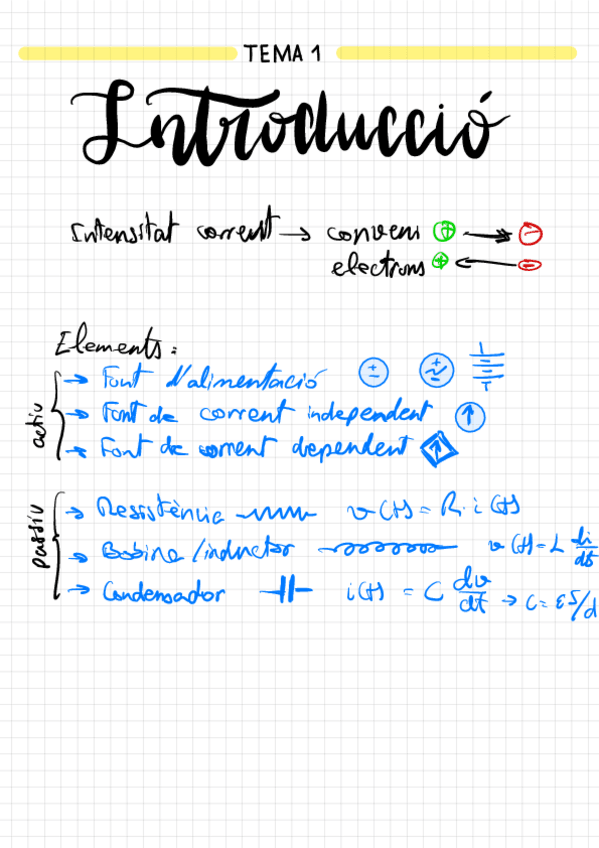 TEMA 1
Introducció
Intensitat corrent → conveni + → −
electrons + ← −
Elements:
actiu
→ Font d'alimentació + −
→ Font de corrent independent ↑
→ Font de corrent dependent ↑
passiu
→ Resistència v(t) = R · i(t)
→ Bobina/inductor v(t) = L di/dt
→ Condensador i(t) = C dv/dt → C = ε S/d